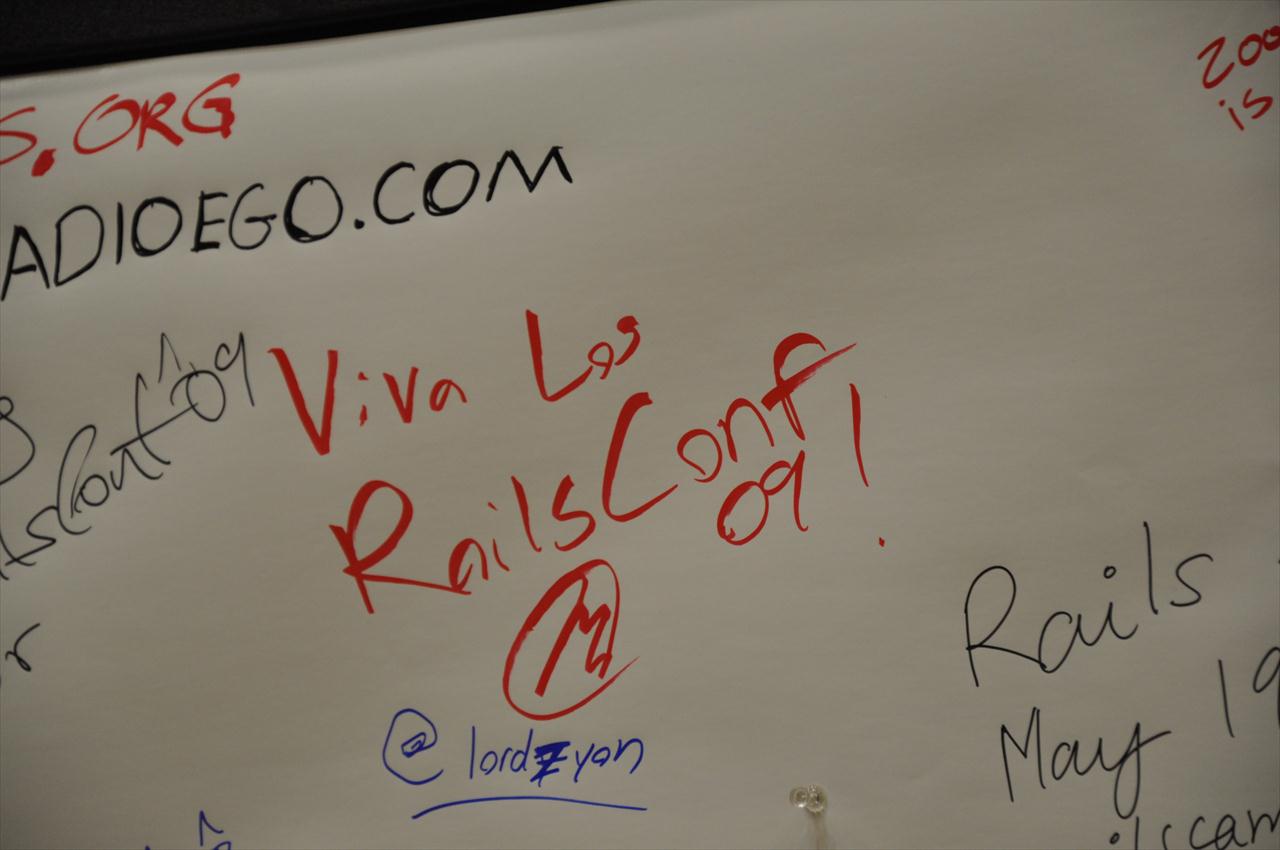 S.ORG
ADIOEGO.COM
200
is
lsConf '09
Viva Las
RailsConf
09!
M
@lordzyon
r
Rails
May 19
ilscam